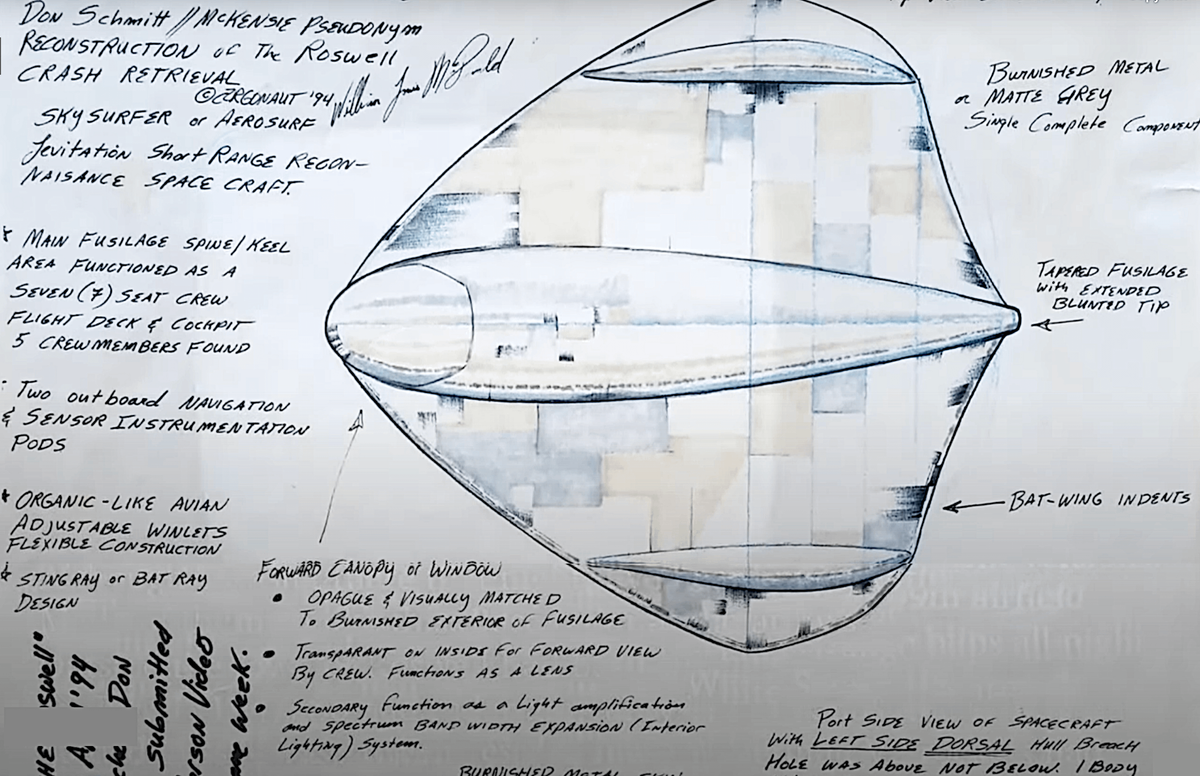 Don Schmitt // McKensie Pseudonym
Reconstruction of The Roswell
Crash Retrieval
© '94
Skysurfer or Aerosurf
Levitation Short Range Recon-
naisance Space Craft.
* Main Fusilage Spine/Keel
Area Functioned as a
Seven (7) Seat Crew
Flight Deck & Cockpit
5 Crewmembers Found
Two outboard Navigation
& Sensor Instrumentation
Pods
* Organic-Like Avian
Adjustable Winlets
Flexible Construction
* Stingray or Bat Ray
Design
Burnished Metal
or Matte Grey
Single Complete Component
Tapered Fusilage
with Extended
Blunted Tip
Bat-Wing Indents
Forward Canopy or Window
• Opague & Visually Matched
To Burnished Exterior of Fusilage
• Transparant on Inside For Forward View
By Crew. Functions as a Lens
• Secondary Function as a Light amplification
and Spectrum Band Width Expansion (Interior
Lighting) System.
Burnished Metal Skin
Port Side View of Spacecraft
With Left Side Dorsal Hull Breach
Hole was Above Not Below. 1 Body
'94
Don
Submitted
Video
Week.